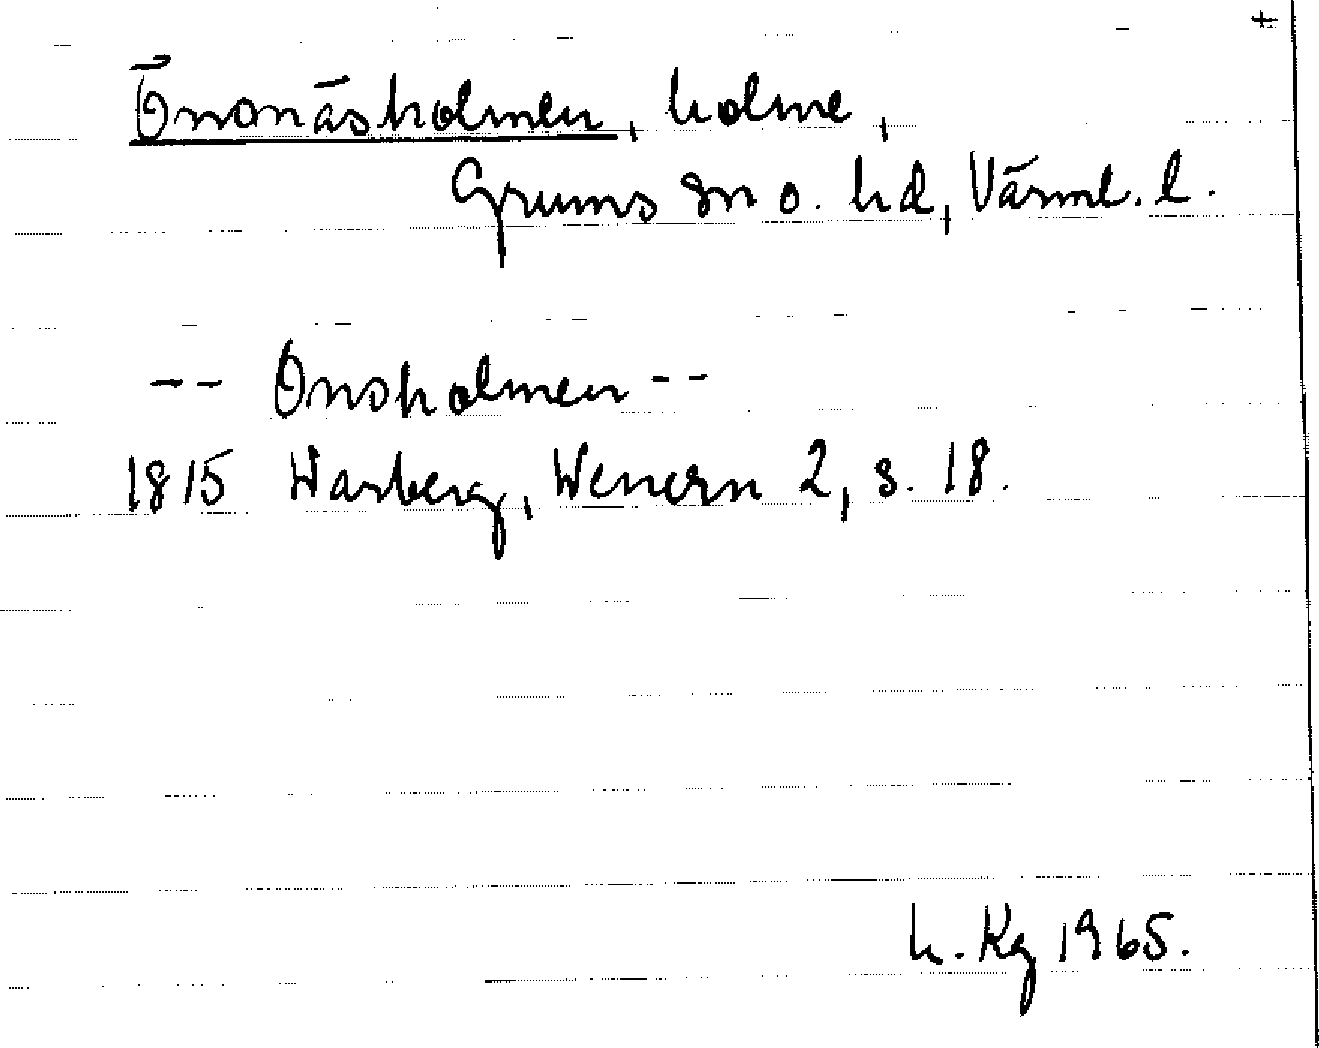 ‡
Önsnäsholmen, holme,
Grums sn o. hd, Värml. l.
-- Onsholmen --
1815 Warberg, Wenern 2, s. 18.
h. Kg 1965.